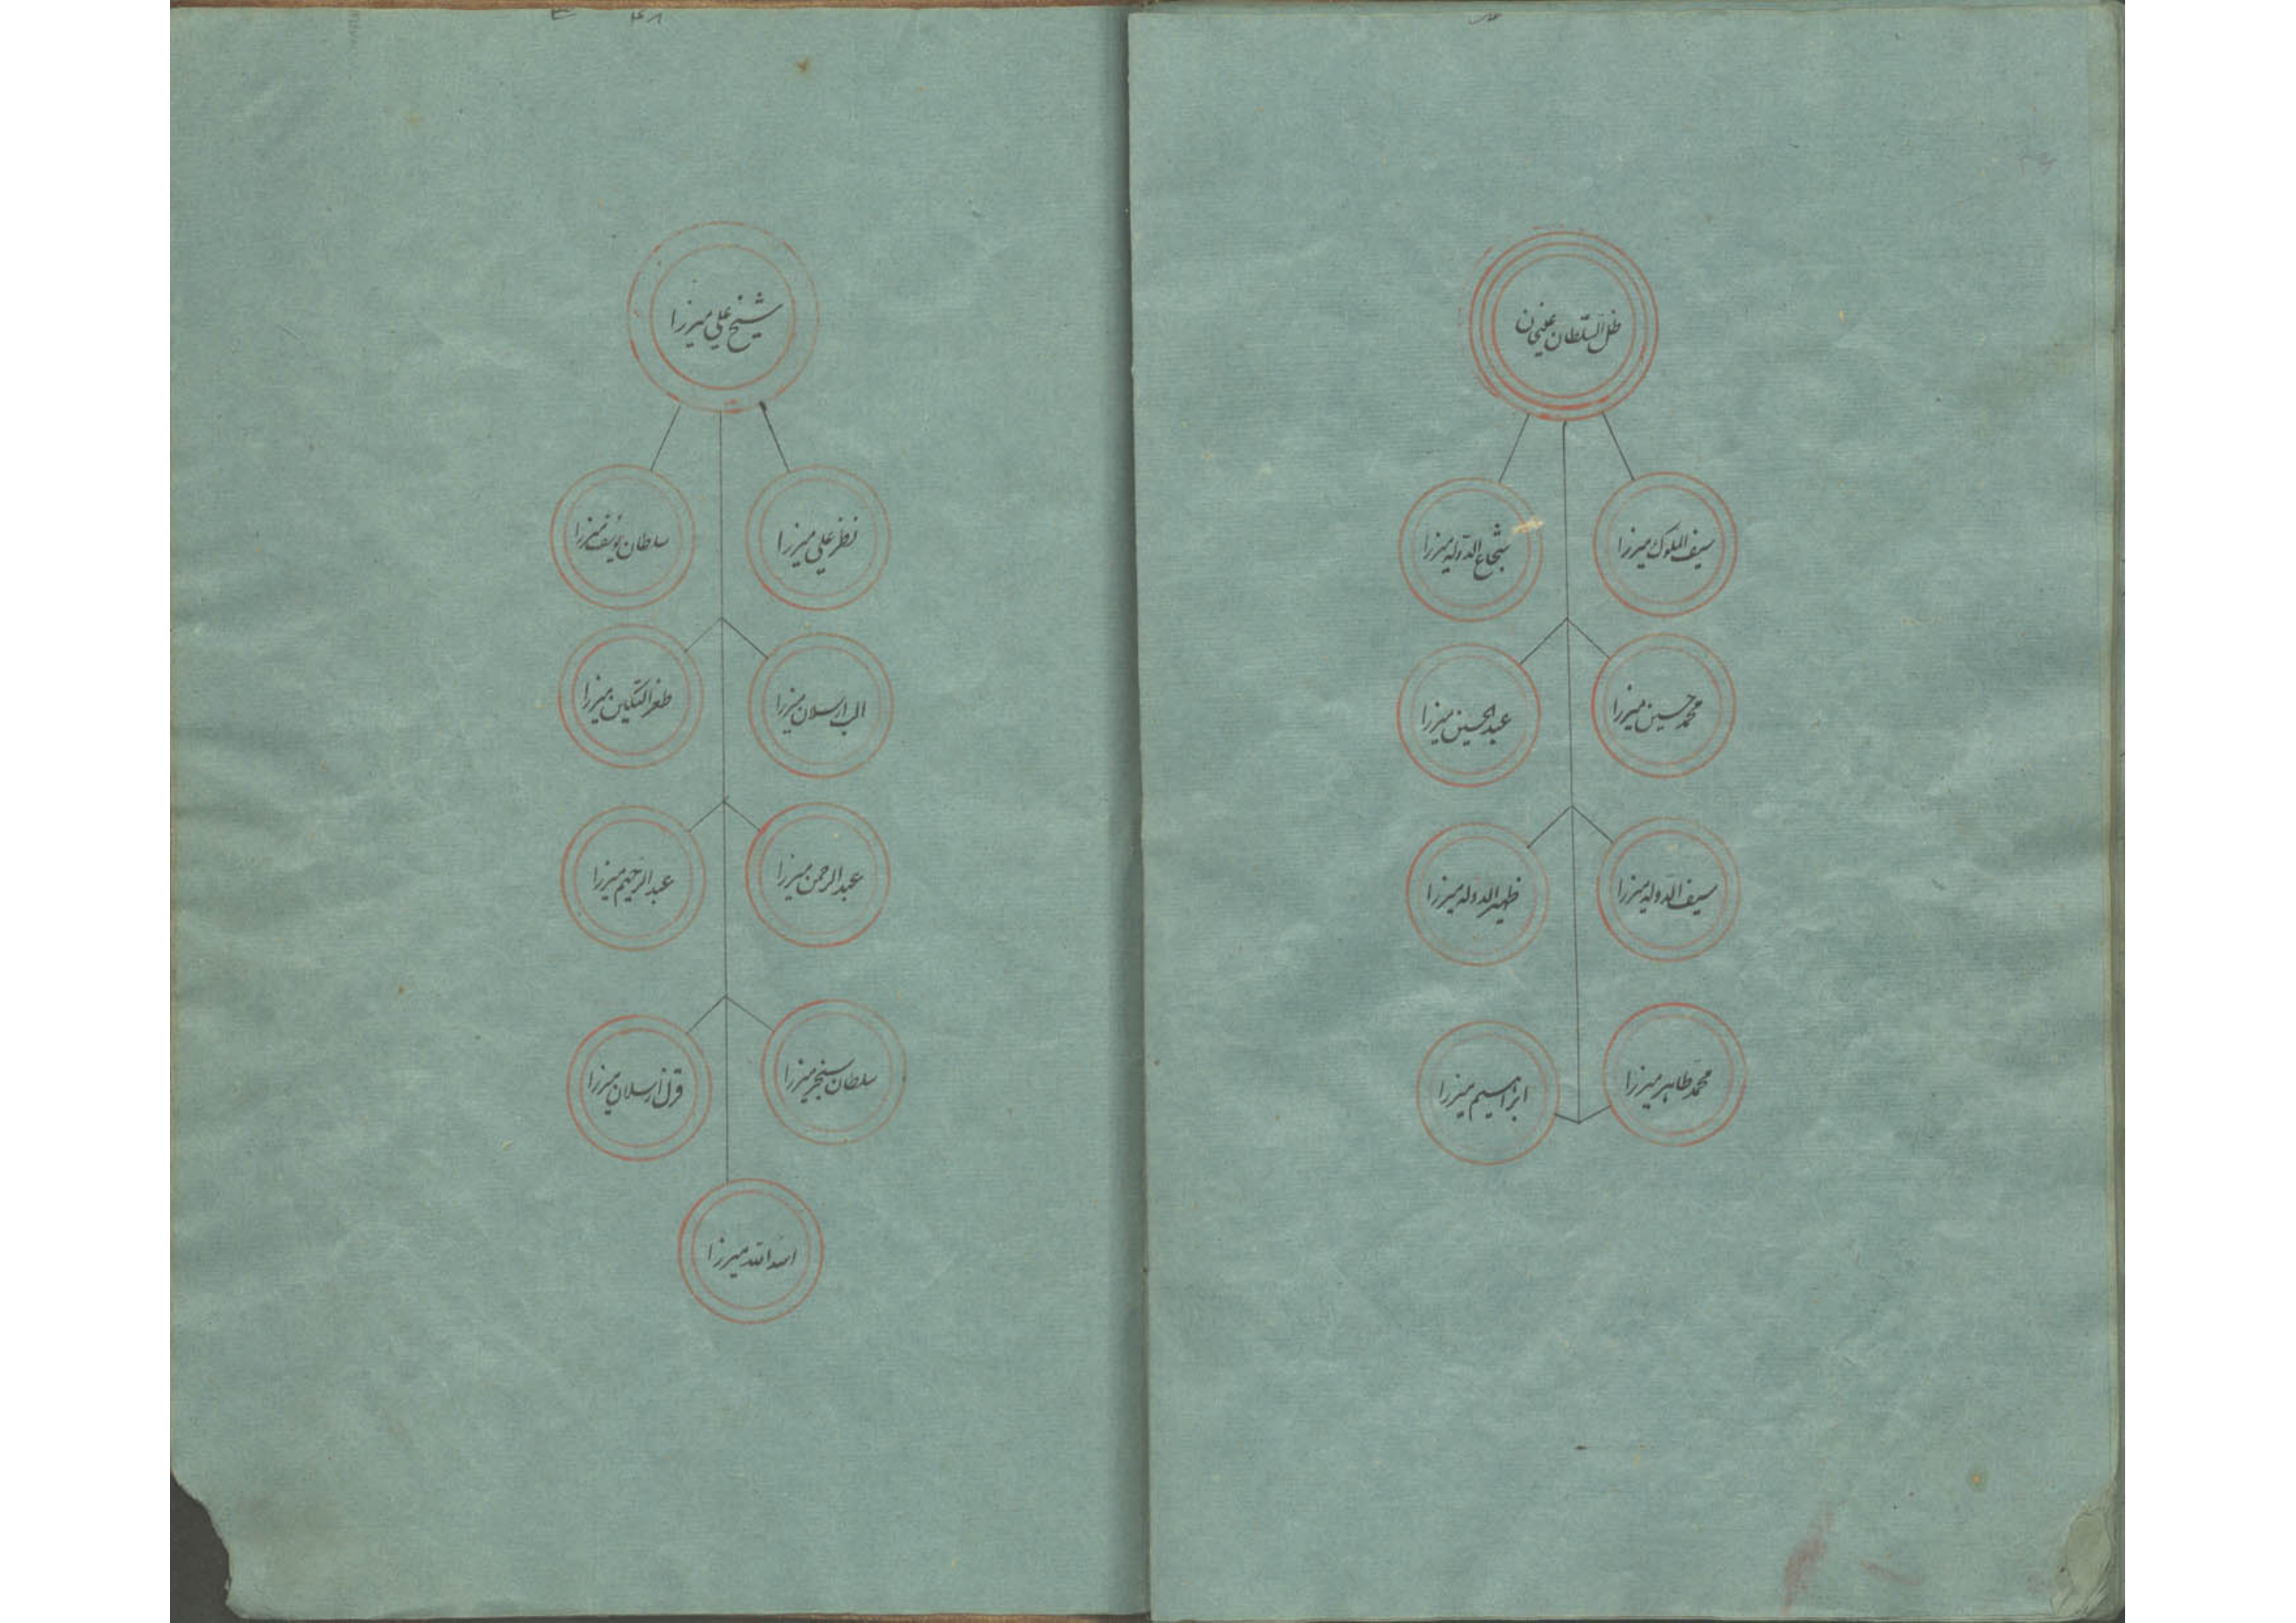 ظل السلطان علیخان
سیف الملوک میرزا
شجاع الدوله میرزا
محمد حسین میرزا
عبدالحسین میرزا
سیف الدوله میرزا
ظهیر الدوله میرزا
محمد طاهر میرزا
ابراهیم میرزا
شیخ علی میرزا
نظر علی میرزا
سلطان یوسف میرزا
الب ارسلان میرزا
طغر التکین میرزا
عبد الرحمن میرزا
عبد الرحیم میرزا
سلطان سنجر میرزا
قزل ارسلان میرزا
اسد الله میرزا